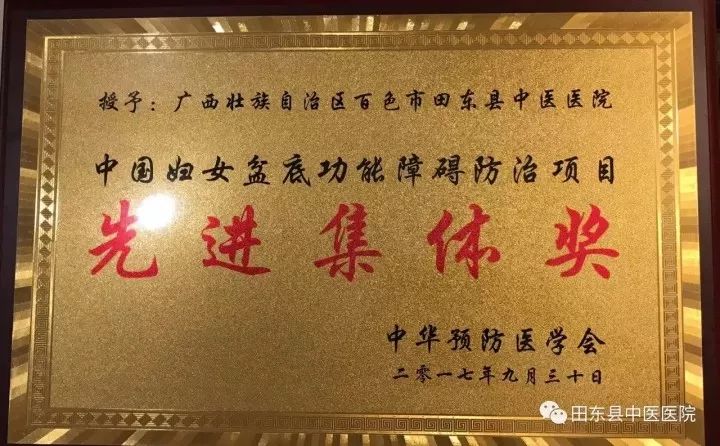 授予：广西壮族自治区百色市田东县中医医院
中国妇女盆底功能障碍防治项目
先进集体奖
中华预防医学会
二零一七年九月三十日
田东县中医医院